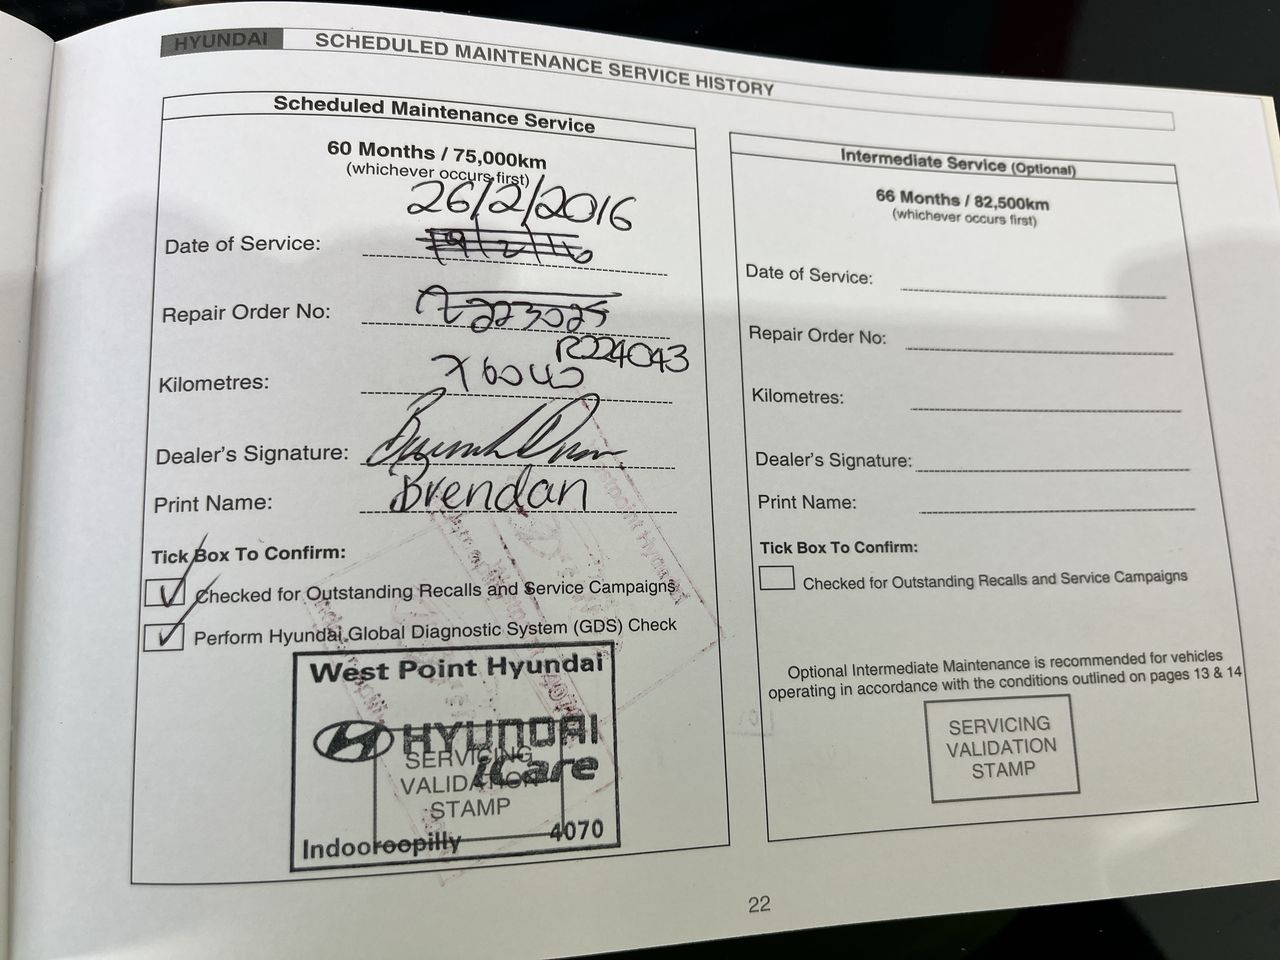 HYUNDAI
SCHEDULED MAINTENANCE SERVICE HISTORY
Scheduled Maintenance Service
60 Months / 75,000km
(whichever occurs first)
26/2/2016
Date of Service: 19/2/16
Repair Order No: R223025
R224043
Kilometres:
Dealer's Signature:
Print Name: Brendan
Tick Box To Confirm:
Checked for Outstanding Recalls and Service Campaigns
Perform Hyundai Global Diagnostic System (GDS) Check
West Point Hyundai
HYUNDAI
iCare
SERVICING
VALIDATION
STAMP
Indooroopilly 4070
Intermediate Service (Optional)
66 Months / 82,500km
(whichever occurs first)
Date of Service:
Repair Order No:
Kilometres:
Dealer's Signature:
Print Name:
Tick Box To Confirm:
Checked for Outstanding Recalls and Service Campaigns
Optional Intermediate Maintenance is recommended for vehicles
operating in accordance with the conditions outlined on pages 13 & 14
SERVICING
VALIDATION
STAMP
22